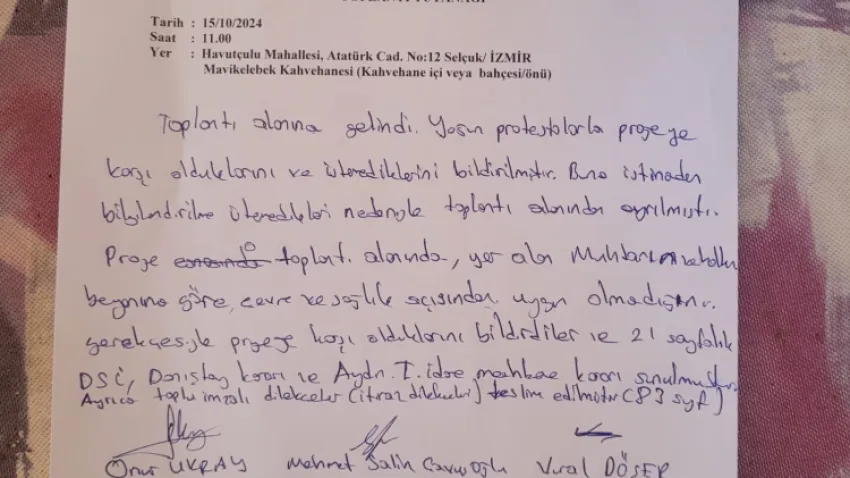 Tarih : 15/10/2024
Saat : 11.00
Yer : Havutçulu Mahallesi, Atatürk Cad. No:12 Selçuk/ İZMİR
Mavikelebek Kahvehanesi (Kahvehane içi veya bahçesi/önü)
Toplantı alanına gelindi. Yoğun protestolarla projeye
karşı olduklarını ve istemediklerini bildirilmiştir. Buna istinaden
bilgilendirilme istemedikleri nedeniyle toplantı alanından ayrılmıştır.
Proje toplantı alanında, yer alan Muhtarın ve halkın
beyanına göre, çevre ve sağlık açısından uygun olmadığını
gerekçesiyle projeye karşı olduklarını bildirdiler ve 21 sayfalık
DSİ, Danıştay kararı ve Aydın 1. idare mahkeme kararı sunulmuştur.
Ayrıca toplu imzalı dilekçeler (itiraz dilekçeleri) teslim edilmiştir (83 syf)
Onur UKRAY Mehmet Salih Çavuşoğlu Vural DÖŞER